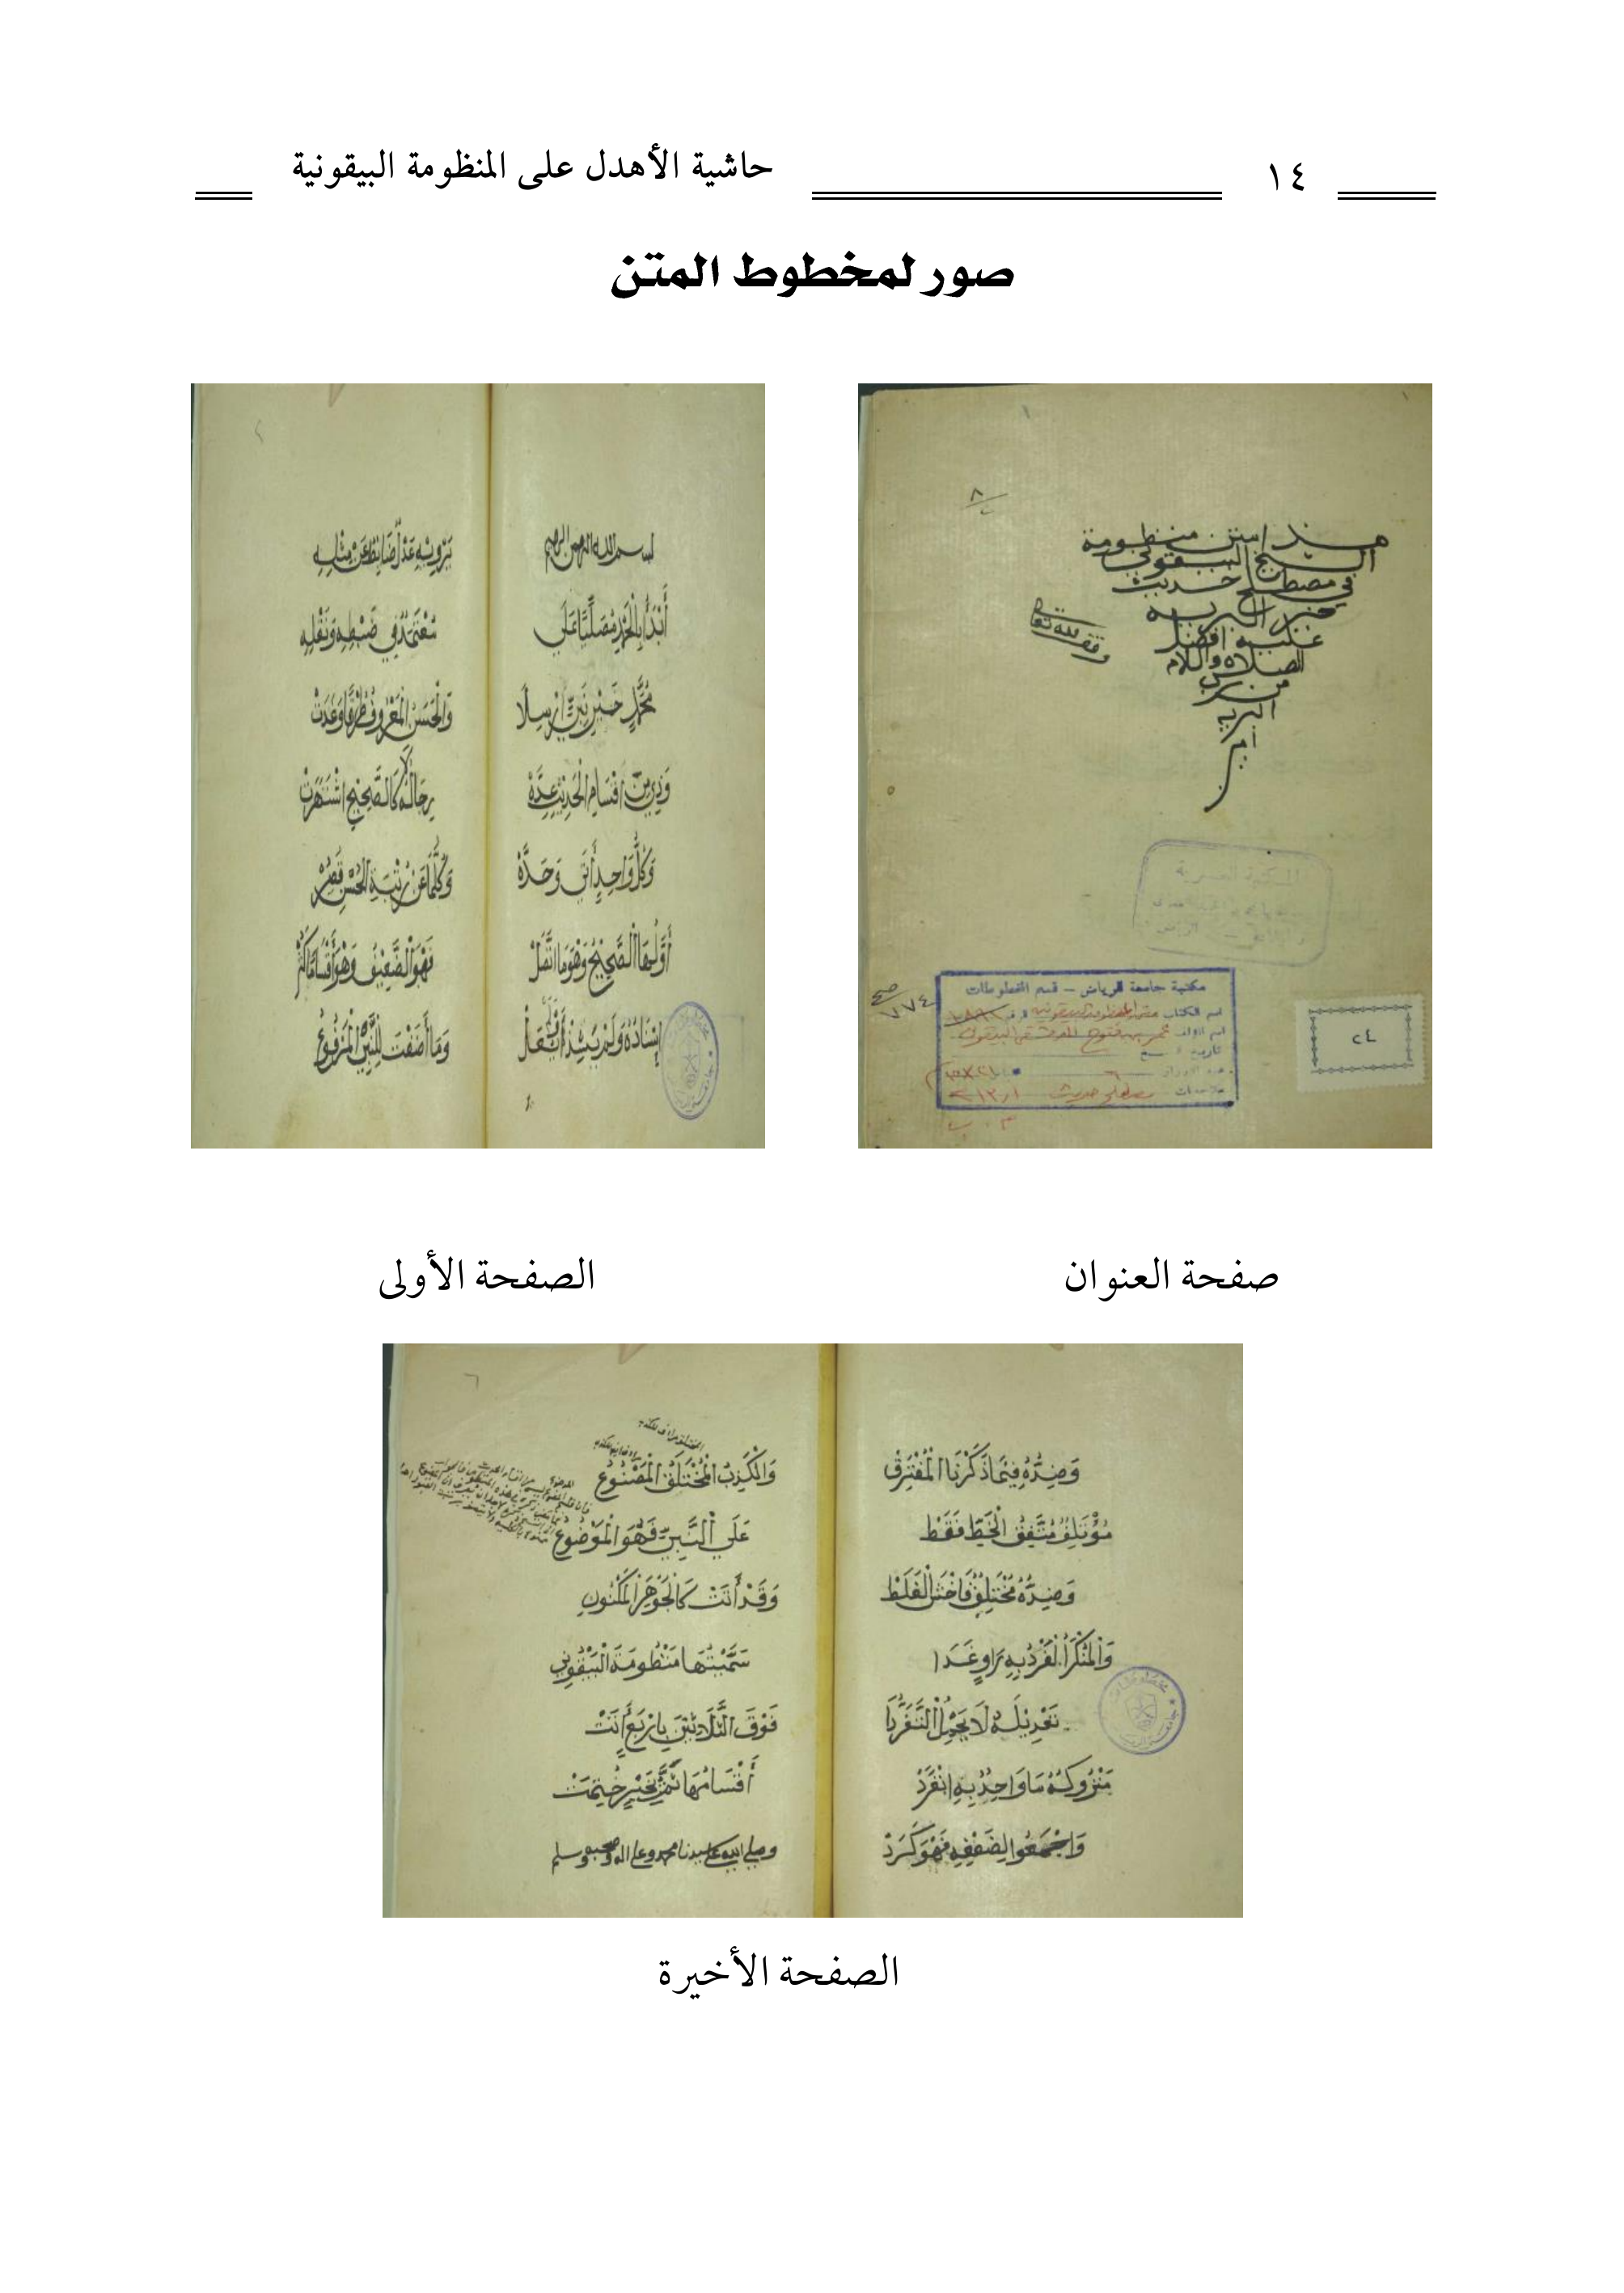 ١٤
حاشية الأهدل على المنظومة البيقونية
صور لمخطوط المتن
هذا متن منظومة
الشيخ البيقوني
في مصطلح حديث
خير البريه
عليه افضل
الصلاة والسلام
من رب
البريه
امين
وقف لله تعالى
مكتبة جامعة الرياض - قسم المخطوطات
اسم الكتاب
اسم المؤلف عمر بن فتوح الدمشقي البيقوني
تاريخ النسخ
عدد الاوراق ٦
ملاحظات مصطلح حديث
٢٤
بسم الله الرحمن الرحيم
أَبْدَأُ بِالْحَمْدِ مُصَلِّيًا عَلَى
مُحَمَّدٍ خَيْرِ نَبِيٍّ ارْسِلَا
وَذِي مِنَ اقْسَامِ الْحَدِيثِ عِدَّهْ
وَكُلُّ وَاحِدٍ أَتَى وَحَدَّهْ
أَوَّلُهَا الصَّحِيحُ وَهْوَ مَا اتَّصَلْ
إِسْنَادُهُ وَلَمْ يَشُذَّ أَوْ يُعَلْ
يَرْوِيهِ عَدْلٌ ضَابِطٌ عَنْ مِثْلِهِ
مُعْتَمَدٌ فِي ضَبْطِهِ وَنَقْلِهِ
وَالْحَسَنُ الْمَعْرُوفُ طُرْقًا وَغَدَتْ
رِجَالُهُ لَا كَالصَّحِيحِ اشْتَهَرَتْ
وَكُلُّمَا عَنْ رُتْبَةِ الْحُسْنِ قَصُرْ
فَهْوَ الضَّعِيفُ وَهْوَ أَقْسَامًا كَثُرْ
وَمَا أُضِفَتْ لِلنَّبِيِّ الْمَرْفُوعُ
صفحة العنوان
الصفحة الأولى
وَضِدُّهُ فِيمَا ذَكَرْنَا الْمُفْتَرِقْ
مُؤْتَلِفٌ مُتَّفِقُ الْخَطِّ فَقَطْ
وَضِدُّهُ مُخْتَلِفٌ فَاخْشَ الْغَلَطْ
وَالْمُنْكَرُ الْفَرْدُ بِهِ رَاوٍ غَدَا
تَعْدِيلُهُ لَا يَحْمِلُ التَّفَرُّدَا
مَتْرُوكُهُ مَا وَاحِدٌ بِهِ انْفَرَدْ
وَاجْمَعُوا لِضَعْفِهِ فَهْوَ كَرَدْ
وَالْكَذِبُ الْمُخْتَلَقُ الْمَصْنُوعُ
عَلَى النَّبِيِّ فَهُوَ الْمَوْضُوعُ
وَقَدْ أَتَتْ كَالْجَوْهَرِ الْمَكْنُونِ
سَمَّيْتُهَا مَنْظُومَةَ الْبَيْقُونِي
فَوْقَ الثَّلَاثِينَ بِارْبَعٍ أَتَتْ
أَقْسَامُهَا ثُمَّ بِخَيْرٍ خُتِمَتْ
وصلى الله على سيدنا محمد وعلى اله وصحبه وسلم
الصفحة الأخيرة